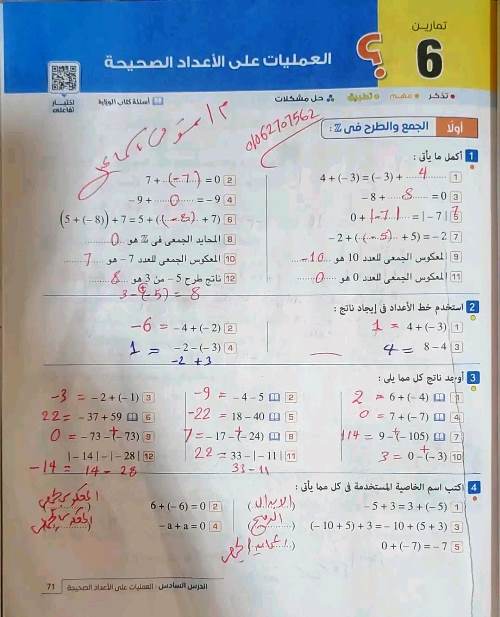 تمارين
6
العمليات على الأعداد الصحيحة
؟
• تذكر • فهم • تطبيق حل مشكلات أسئلة كتاب الوزارة
اختبار تفاعلي
أولًا الجمع والطرح فى ℤ :
01062707562
1 أكمل ما يأتى :
1 4 + (−3) = (−3) + 4
2 7 + (−7) = 0
3 −8 + 8 = 0
4 −9 + 0 = −9
5 0 + |−7| = |−7|
6 (5 + (−8)) + 7 = 5 + ((−8) + 7)
7 −2 + ((−5) + 5) = −2
8 المحايد الجمعى فى ℤ هو 0
9 المعكوس الجمعى للعدد 10 هو −10
10 المعكوس الجمعى للعدد −7 هو 7
11 المعكوس الجمعى للعدد 0 هو 0
12 ناتج طرح −5 من 3 هو 8
3 − (−5) = 8
2 استخدم خط الأعداد فى إيجاد ناتج :
1 4 + (−3) = 1
2 −4 + (−2) = −6
3 8 − 4 = 4
4 −2 − (−3) = 1
−2 + 3
3 أوجد ناتج كل مما يلى :
1 6 + (−4) = 2
2 −4 − 5 = −9
3 −2 + (−1) = −3
4 7 + (−7) = 0
5 18 − 40 = −22
6 −37 + 59 = 22
7 9 − (−105) = 114
8 −17 − (−24) = 7
9 −73 − (−73) = 0
10 0 − (−3) = 3
11 33 − |−11| = 22
33 − 11
12 |−14| − |−28|
14 − 28 = −14
4 اكتب اسم الخاصية المستخدمة فى كل مما يأتى :
1 −5 + 3 = 3 + (−5) (الإبدال)
2 6 + (−6) = 0 (المعكوس الجمعى)
3 (−10 + 5) + 3 = −10 + (5 + 3) (الدمج)
4 −a + a = 0 (المعكوس الجمعى)
5 0 + (−7) = −7 (المحايد الجمعى)
الدرس السادس : العمليات على الأعداد الصحيحة 71